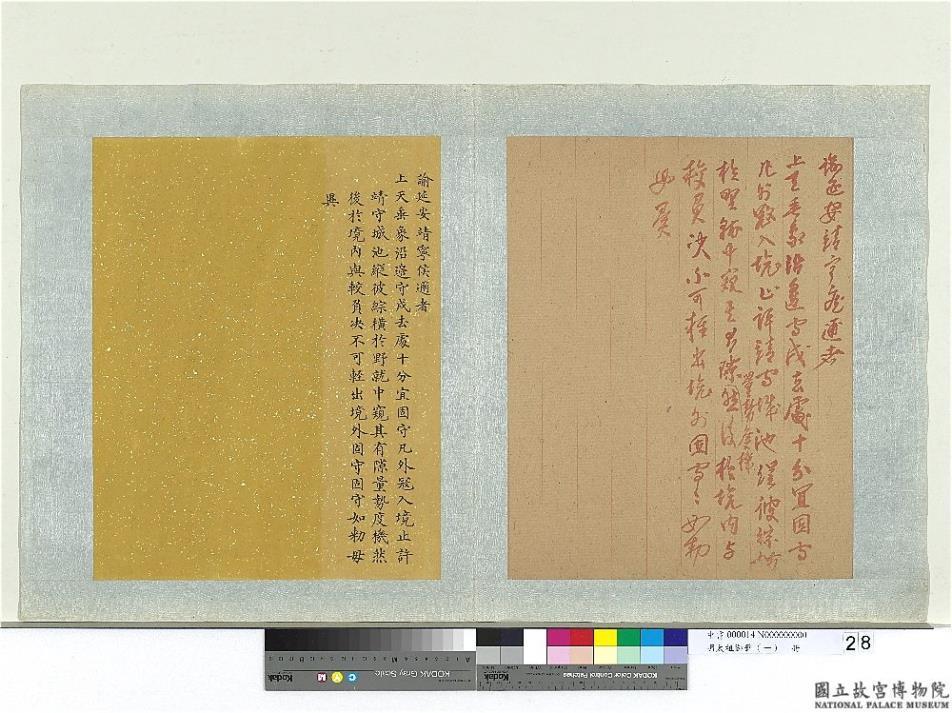 諭延安靖寧侯邇者
上天垂象沿邊守戍去處十分宜固守
凡外寇入境止許靖守城池縱彼綜橫
於野就中窺其有隙量勢度機然後於境內与
較負決不可輕出境外固守〻如勑
毋異
諭延安靖寧侯邇者
上天垂象沿邊守戍去處十分宜固守凡外寇入境止許
靖守城池縱彼綜橫於野就中窺其有隙量勢度機然
後於境內與較負決不可軽出境外固守固守如勑毋
異
KODAK Gray Scale
C
Y
M
Kodak
KODAK Color Control Patches
Kodak
000014 N000000000
明太祖御筆(一) 冊
28
國立故宮博物院
NATIONAL PALACE MUSEUM